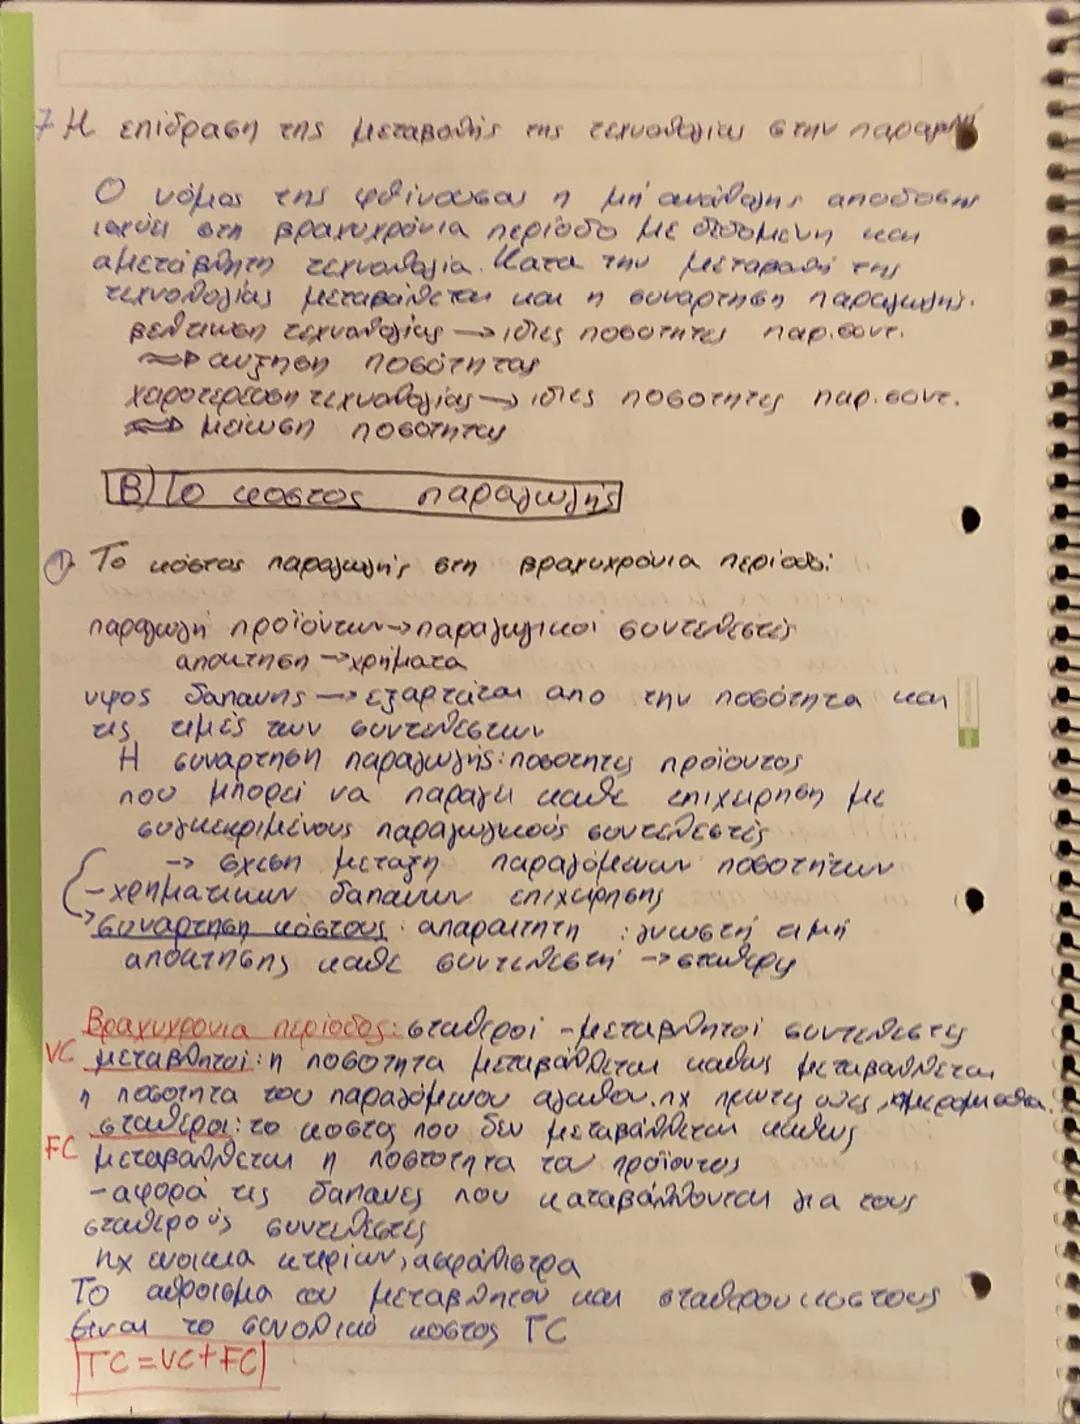 7 Η επίδραση της μεταβολής της τεχνολογίας στην παραγωγή
Ο νόμος της φθίνουσας ή μη ανάλογης αποδοσης
ισχύει στη βραχυχρόνια περίοδο με δεδομένη και
αμετάβλητη τεχνολογία. Κατα την μεταβολή της
τεχνολογίας μεταβάλλεται και η συναρτηση παραγωγής.
βελτιωση τεχνολογίας → ιδιες ποσοτητες παρ.συντ.
⇒ αυξηση ποσότητας
χειροτερευση τεχνολογίας → ιδιες ποσοτητες παρ.συντ.
⇒ μείωση ποσοτητας
Β) Το κοστος παραγωγής
① Το κόστος παραγωγής στη βραχυχρόνια περίοδο:
παραγωγή προϊόντων → παραγωγικοί συντελεστές
αποκτηση → χρήματα
υψος δαπανης → εξαρτάται απο την ποσότητα και
τις τιμές των συντελεστων
Η συναρτηση παραγωγής: ποσοτητες προϊοντος
που μπορεί να παραγει καθε επιχειρηση με
συγκεκριμένους παραγωγικούς συντελεστές
→ σχεση μεταξη παραγόμενων ποσοτήτων
- χρηματικων δαπανων επιχείρησης
→ συναρτηση κόστους: απαραιτητη : γνωστή τιμή
αποκτησης καθε συντελεστή → σταθερη
Βραχυχρονια περίοδος: σταθεροί - μεταβλητοί συντελεστες
VC μεταβλητοι: η ποσοτητα μεταβάλλεται καθως μεταβαλλεται
η ποσοτητα του παραγόμενου αγαθου. πχ πρωτες υλες, ημερομισθια.
FC σταθεροι: το κοστος που δεν μεταβάλλεται καθως
μεταβαλλεται η ποστοτητα του προϊοντος
- αφορά τις δαπανες που καταβάλλονται για τους
σταθερούς συντελεστες
πχ ενοικια κτιρίων, ασφάλιστρα
Το αθροισμα του μεταβλητου και σταθερου κοστους
ειναι το συνολικό κοστος TC
TC = VC + FC